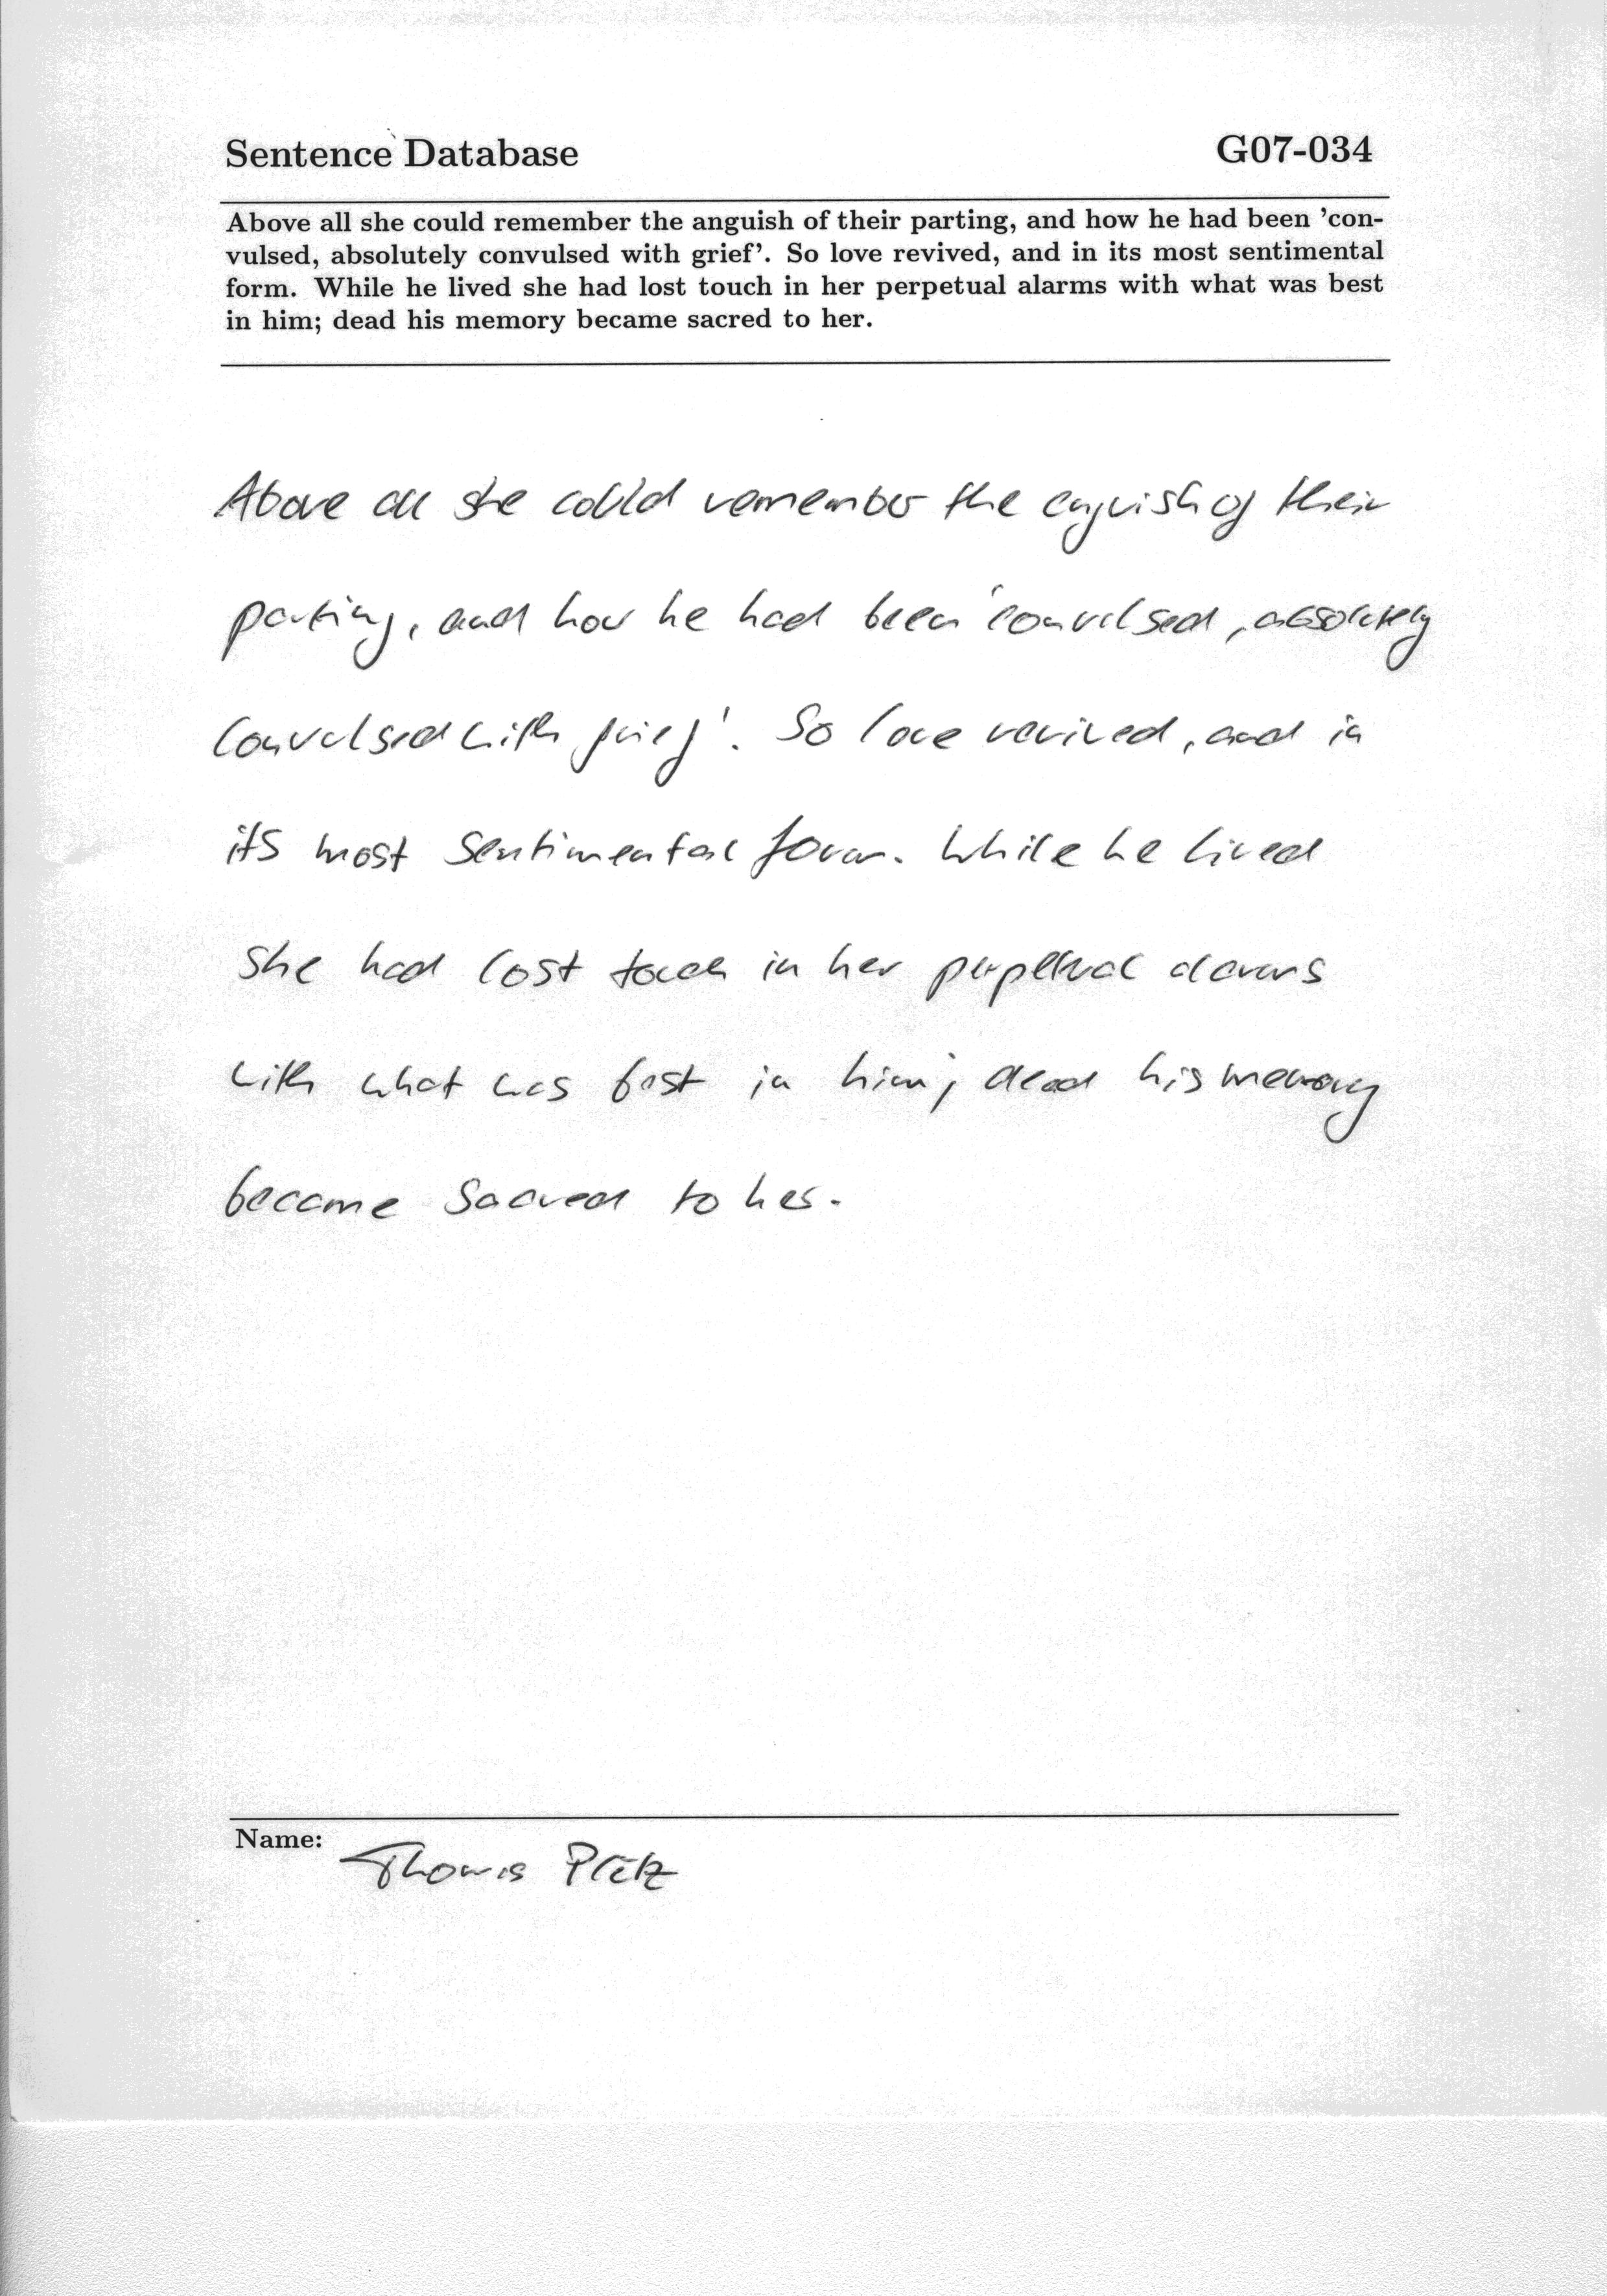 Sentence Database G07-034
Above all she could remember the anguish of their parting, and how he had been 'con-
vulsed, absolutely convulsed with grief'. So love revived, and in its most sentimental
form. While he lived she had lost touch in her perpetual alarms with what was best
in him; dead his memory became sacred to her.
Above all she could remember the anguish of their
parting, and how he had been 'convulsed, absolutely
convulsed with grief'. So love revived, and in
its most sentimental form. While he lived
she had lost touch in her perpetual alarms
with what was best in him; dead his memory
became sacred to her.
Name:
Thomas